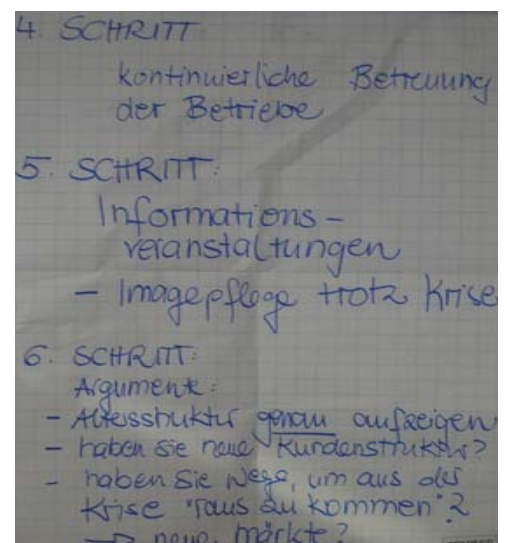 4. SCHRITT
kontinuierliche Betreuung
der Betriebe
5. SCHRITT:
Informations-
veranstaltungen
- Imagepflege trotz Krise
6. SCHRITT:
Argumente:
- Altersstruktur genau aufzeigen
- haben Sie neue Kundenstruktur?
- haben Sie Wege, um aus der
Krise "raus zu kommen"?
→ neue Märkte?